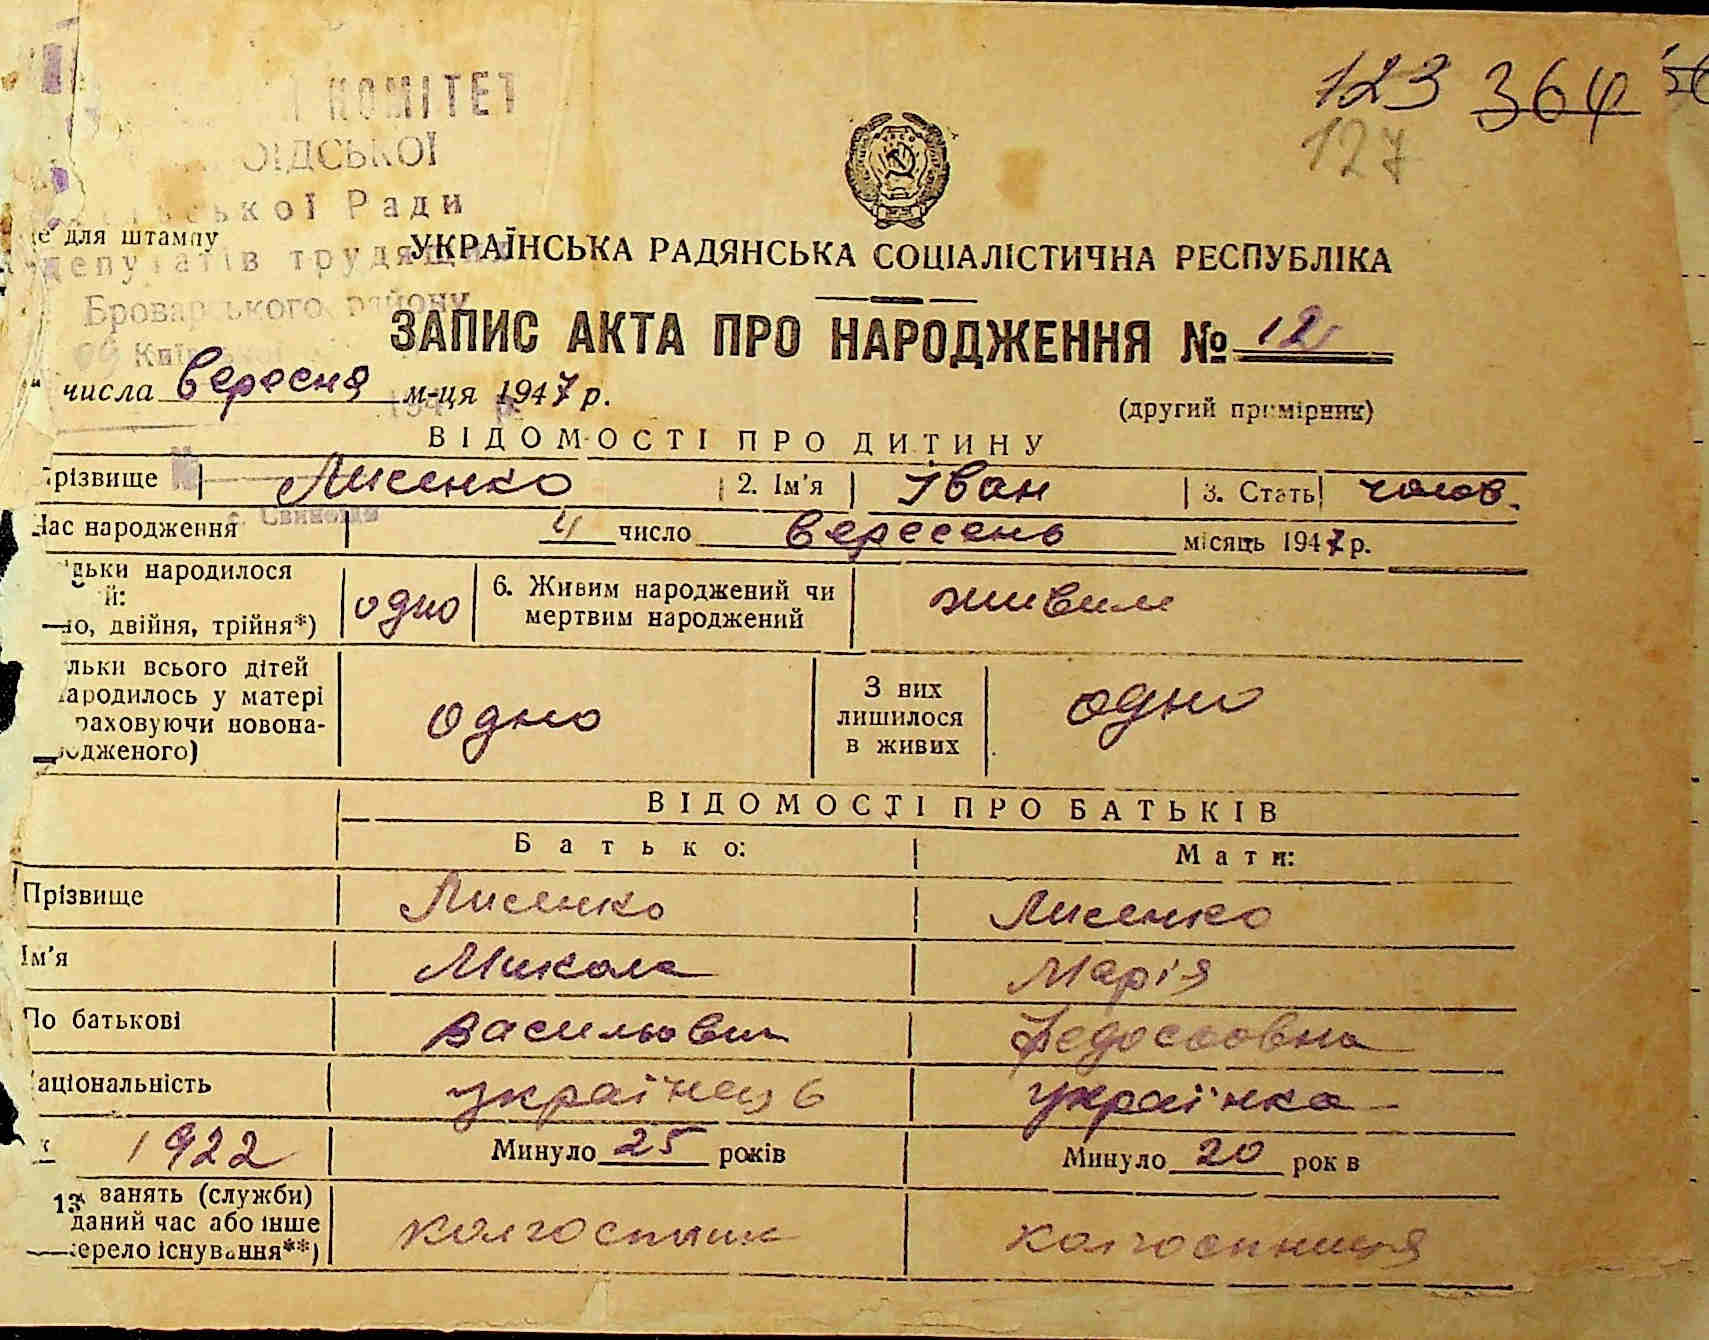 КОМІТЕТ
ОІДСЬКОЇ
ської Ради
депутатів трудящих
Броварського району
Київської
123 364
127
це для штампу
УКРАЇНСЬКА РАДЯНСЬКА СОЦІАЛІСТИЧНА РЕСПУБЛІКА
ЗАПИС АКТА ПРО НАРОДЖЕННЯ № 12
" числа вересня м-ця 1947 р.
(другий примірник)
ВІДОМОСТІ ПРО ДИТИНУ
різвище Лисенко 2. Ім'я Іван 3. Стать чолов.
с. Свиноїди
Час народження 4 число вересень місяць 1947 р.
льки народилося
й:
но, двійня, трійня*) одно 6. Живим народжений чи мертвим народжений живим
льки всього дітей
народилось у матері
раховуючи новона-
родженого) одно З них лишилося в живих одно
ВІДОМОСТІ ПРО БАТЬКІВ
Батько: Мати:
Прізвище Лисенко Лисенко
Ім'я Микола Марія
По батькові Васильович Федосьовна
Національність українець українка
1922 Минуло 25 років Минуло 20 років
13. занять (служби)
даний час або інше
жерело існування**) колгоспник колгоспниця